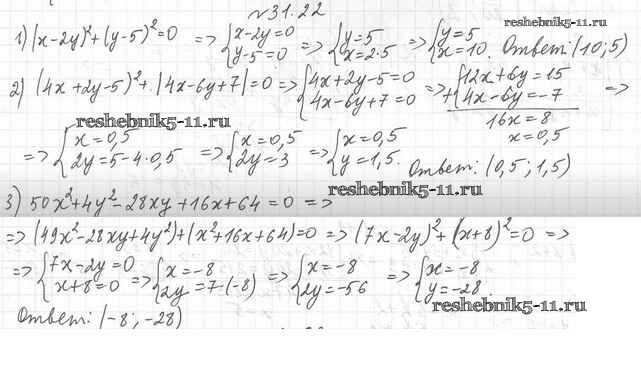 №31.22
reshebnik5-11.ru
1) (x-2y)²+(y-5)²=0 => {x-2y=0 y-5=0 => {y=5 x=2·5 => {y=5 x=10. Ответ: (10;5)
2) (4x+2y-5)²+|4x-6y+7|=0 => {4x+2y-5=0 4x-6y+7=0 => +{12x+6y=15 4x-6y=-7 =>
16x=8
x=0,5
reshebnik5-11.ru
=> {x=0,5 2y=5-4·0,5 => {x=0,5 2y=3 => {x=0,5 y=1,5. Ответ: (0,5;1,5)
reshebnik5-11.ru
3) 50x²+4y²-28xy+16x+64=0 =>
=> (49x²-28xy+4y²)+(x²+16x+64)=0 => (7x-2y)²+(x+8)²=0 =>
=> {7x-2y=0 x+8=0 => {x=-8 2y=7·(-8) => {x=-8 2y=-56 => {x=-8 y=-28.
reshebnik5-11.ru
Ответ: (-8;-28)